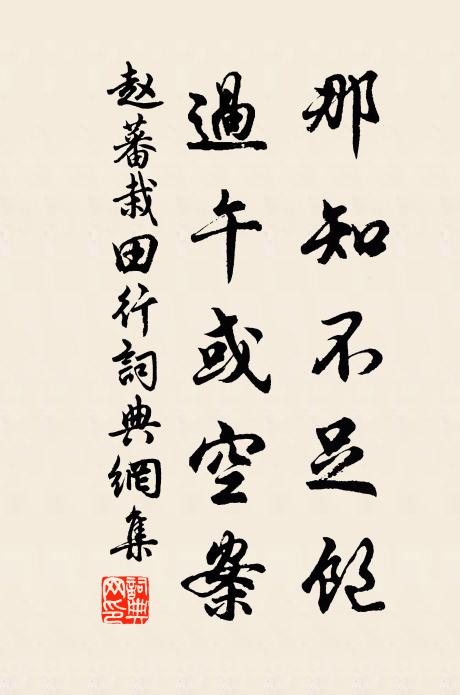 那知不足飽
過午或空案
赵蕃栽田行詞典網集
詞典网印